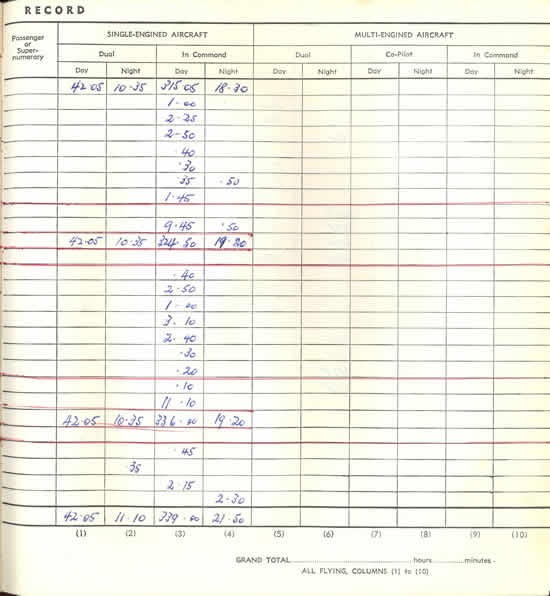 RECORD
Passenger or Super-numerary
SINGLE-ENGINED AIRCRAFT MULTI-ENGINED AIRCRAFT
Dual In Command Dual Co-Pilot In Command
Day Night Day Night Day Night Day Night Day Night
42·05 10·35 315·05 18·30
1·00
2·25
2·50
·40
·30
·35 ·50
1·45
9·45 ·50
42·05 10·35 324·50 19·20
·40
2·50
1·00
3·10
2·40
·30
·20
·10
11·10
42·05 10·35 336·00 19·20
·45
·35
2·15
2·30
42·05 11·10 339·00 21·50
(1) (2) (3) (4) (5) (6) (7) (8) (9) (10)
GRAND TOTAL hours minutes
ALL FLYING, COLUMNS (1) to (10)